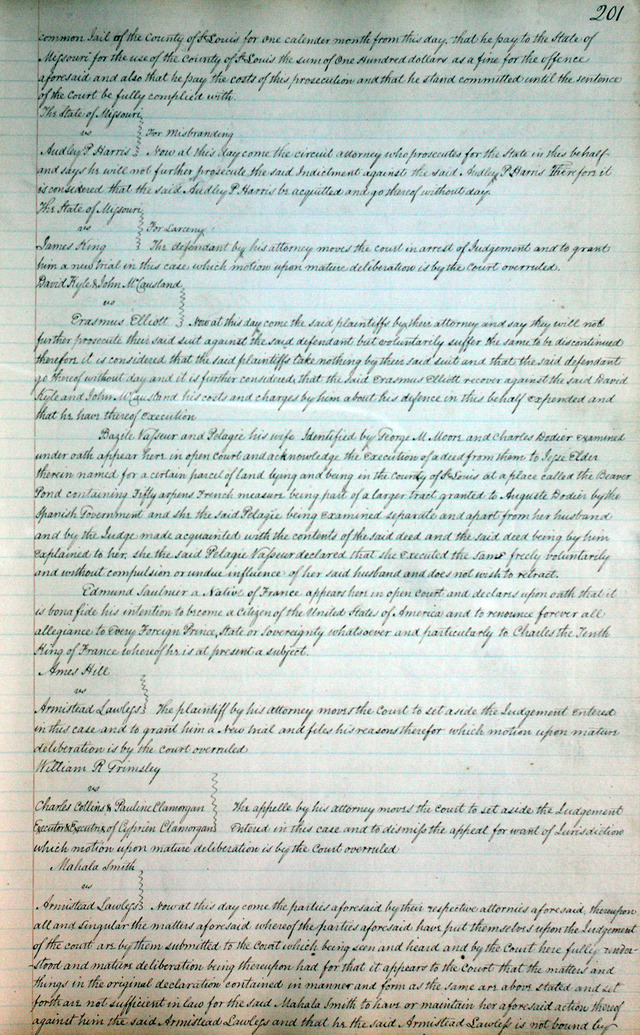 201
common Jail of the County of St Louis for One calender month from this day, that he pay to the State of
Missouri for the use of the County of St Louis the sum of One Hundred dollars as a fine for the offence
aforesaid and also that he pay the costs of this prosecution and that he stand committed until the sentence
of the Court be fully complied with.
The State of Missouri
vs For Misbranding
Audley P Harris Now at this day come the circuit attorney who prosecutes for the State in this behalf
and says he will not further prosecute the said Indictment against the said Audley P Harris Therefore it
is considered that the said Audley P Harris be acquitted and go thereof without day.
The State of Missouri
vs For Larceny
James King The defendant by his attorney moves the court in arrest of Judgement and to grant
him a new trial in this case which motion upon mature deliberation is by the Court overruled.
David Kyle & John McCausland
vs
Erasmus Elliott Now at this day come the said plaintiffs by their attorney and say they will not
further prosecute their said suit against the said defendant but voluntarily suffer the same to be discontinued
therefore it is considered that the said plaintiffs take nothing by their said suit and that the said defendant
go thereof without day and it is further considered that the said Erasmus Elliott recover against the said David
Kyle and John McCausland his costs and charges by him about his defence in this behalf expended and
that he have thereof execution
Bazile Vasseur and Pelagie his wife Identified by George M Moore and Charles Hodier examined
under oath appear here in open Court and acknowledge the execution of a deed from them to Jesse Elder
therein named for a certain parcel of land lying and being in the County of St Louis at a place called the Beaver
Pond containing Fifty arpens French measure being part of a larger tract granted to Auguste Dodier by the
Spanish Government and she the said Pelagie being examined separate and apart from her husband
and by the Judge made acquainted with the contents of the said deed and the said deed being by him
explained to her, she the said Pelagie Vasseur declared that she executed the same freely voluntarily
and without compulsion or undue influence of her said husband and does not wish to retract.
Edmund Saulnier a Native of France appears here in open Court and declares upon oath that it
is bona fide his intention to become a Citizen of the United States of America and to renounce forever all
allegiance to Every Foreign Prince, State or Sovereignty whatsoever and particularly to Charles the Tenth
King of France whereof he is at present a subject.
Ames Hill
vs
Armistead Lawless The plaintiff by his attorney moves the Court to set aside the Judgement entered
in this case and to grant him a New trial and files his reasons therefor which motion upon mature
deliberation is by the court overruled
William R Grimsley
vs
Charles Collins & Pauline Clamorgan The appelle by his attorney moves the Court to set aside the Judgement
Executor & Executrix of Cyprien Clamorgan Entered in this case and to dismiss the appeal for want of Jurisdiction
which motion upon mature deliberation is by the Court overruled
Mahala Smith
vs
Armistead Lawless Now at this day come the parties aforesaid by their respective attornies aforesaid, thereupon
all and singular the matters aforesaid whereof the parties aforesaid have put themselves upon the Judgement
of the court are by them submitted to the Court which being seen and heard and by the Court here fully under
stood and mature deliberation being thereupon had for that it appears to the Court that the matters and
things in the original declaration contained in manner and form as the same are above stated and set
forth are not sufficient in law for the said Mahala Smith to have or maintain her aforesaid action thereof
against him the said Armistead Lawless and that he the said Armistead Lawless is not bound by